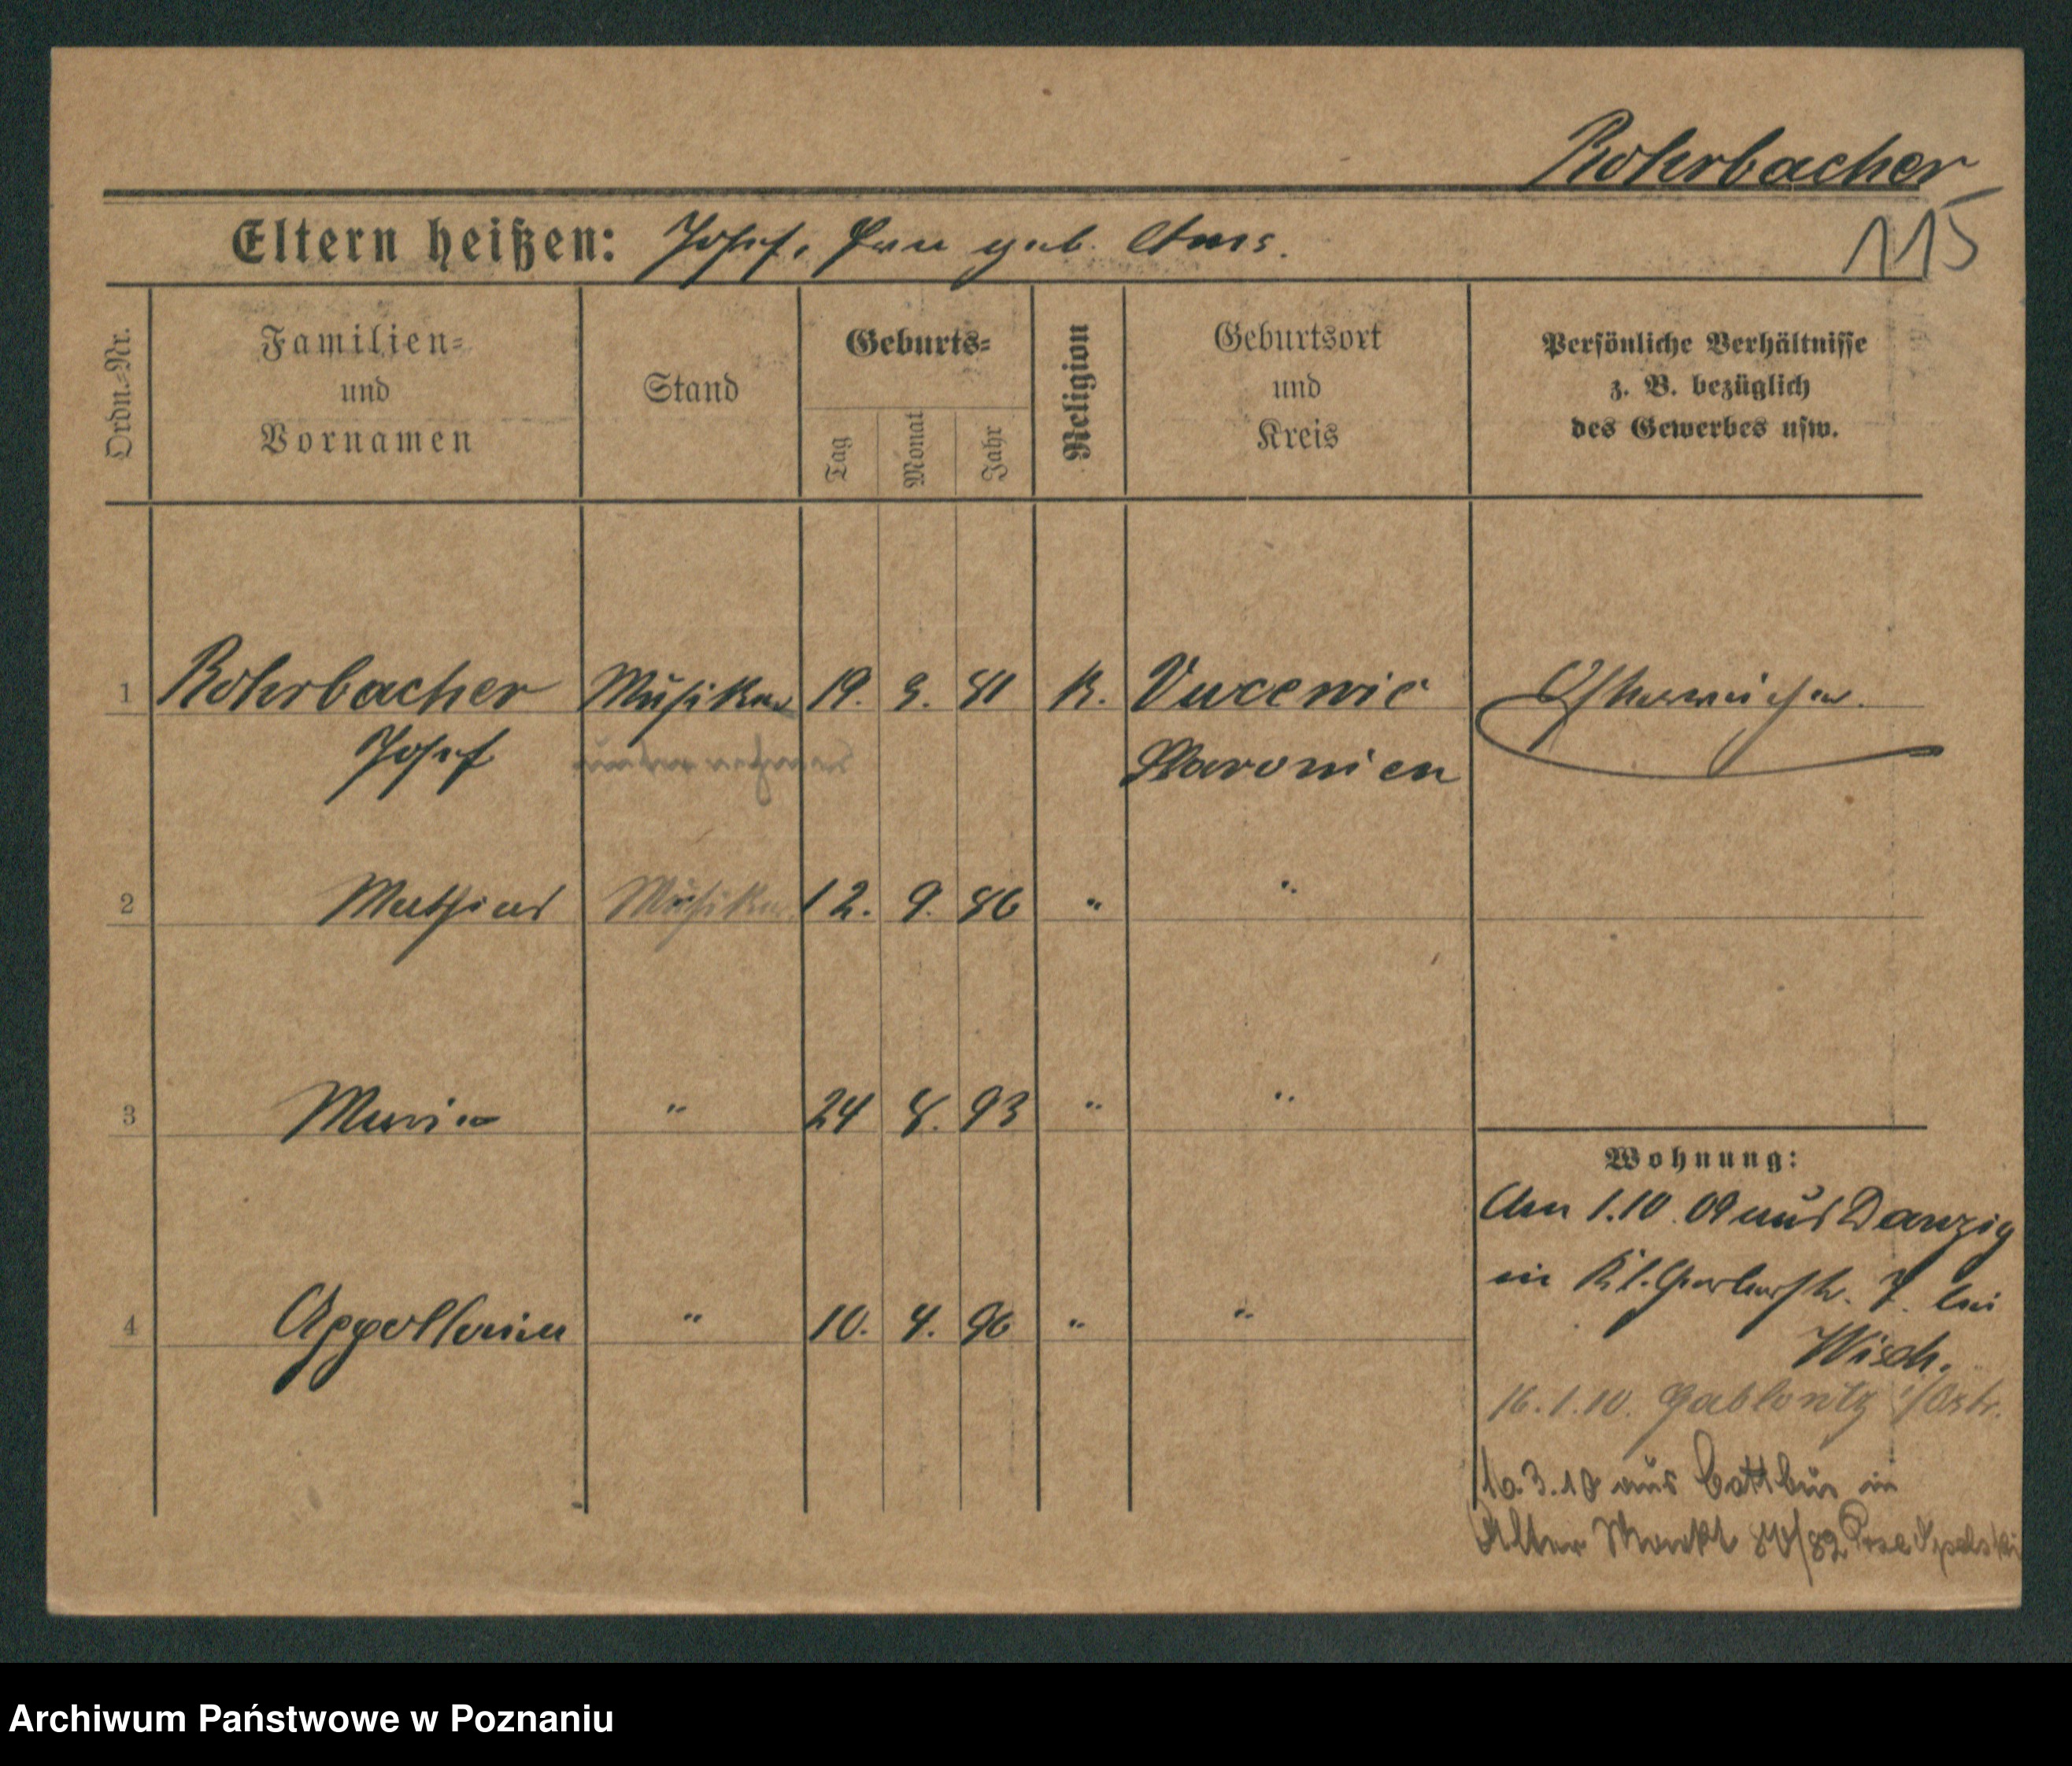 Rohrbacher
115
Eltern heißen: Josef, Eva geb. Ams.
Ordn.-Nr.
Familien- und Vornamen
Stand
Geburts-
Tag
Monat
Jahr
Religion
Geburtsort und Kreis
Persönliche Verhältnisse
z. B. bezüglich
des Gewerbes usw.
1 Rohrbacher Musiker 19. 3. 81 K. Vucevic Österreicher.
Josef unternehmer Slavonien
2 Mathias Musiker 12. 9. 86 " "
3 Maria " 24 8. 93 " "
Wohnung:
Am 1.10.09 aus Danzig
in Kl. Gerberstr. 7. bei
4 Appollonia " 10. 4. 96 " "
Wisch.
16.1.10. Gablonitz i/Östr.
16.3.10 aus Cottbus in
Alter Markt 80/82
Archiwum Państwowe w Poznaniu